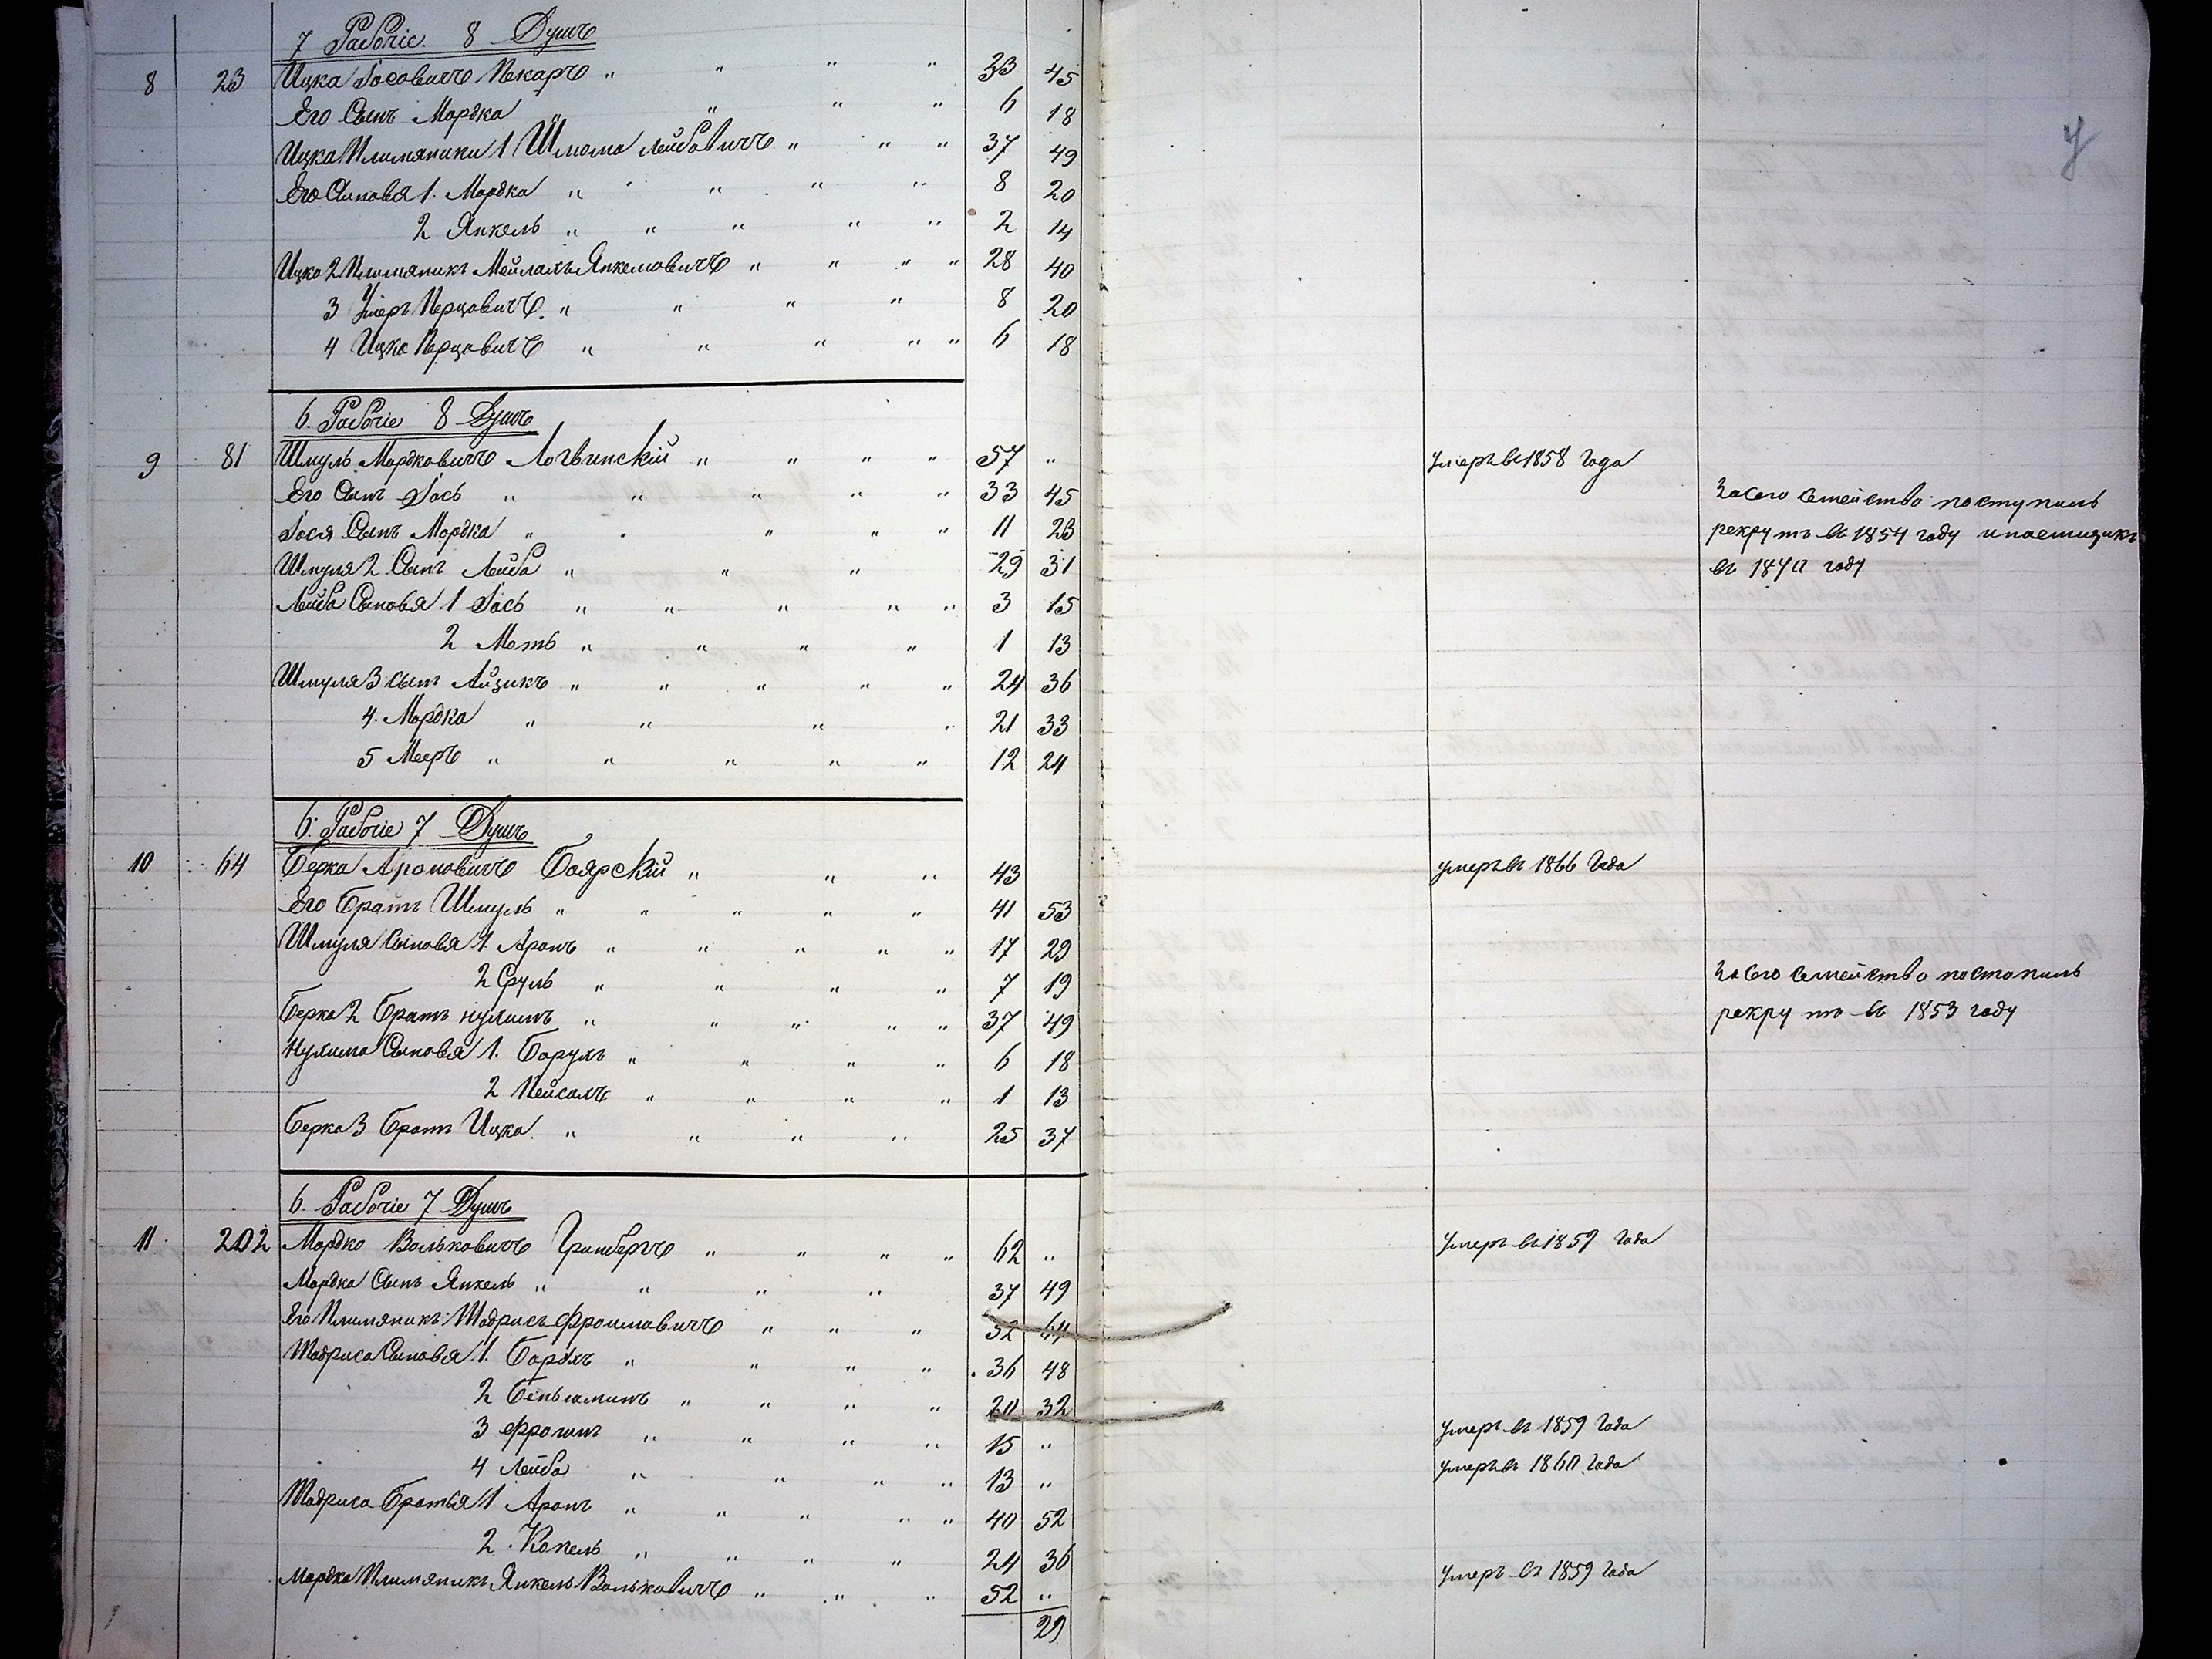 7 Рабочіе. 8 Душъ
8 23 Ицка Іосовичъ Пекаръ " " " " 33 45
Его Сынъ Мордка " " " " 6 18
Ицка Плимяники 1 Шлиома Лейбовичъ " " " 37 49
Его Сыновя 1. Мордка " " " " " 8 20
2 Янкель " " " " " 2 14
Ицко 2 Плимяникъ Мейлахъ Янкелиовичъ " " " " 28 40
3 Умеръ Перцовичъ. " " " " 8 20
4 Ицко Перцовичъ " " " " " 6 18
6. Рабочіе 8 Душъ
9 81 Шмуль Мордковичъ Логвинскій " " " " 57 " Умеръ въ 1858 Года
Его Сынъ Іось " " " " " 33 45 За сего Семейство поступилъ
Іося Сынъ Мордка " " " " " 11 23 рекрутъ въ 1854 году
Шмуля 2. Сынъ Лейба " " " 29 31 въ 1840 году
Лейба Сыновя 1 Іось " " " " " 3 15
2 Моть " " " " 1 13
Шмуля 3 Сынъ Айзикъ " " " " " 24 36
4. Мордка " " " " 21 33
5 Мееръ " " " " " 12 24
6. Рабочіе 7 Душъ
10 64 Берка Ароновичъ Боярскій " " " 43 умеръ въ 1866 Года
Его Братъ Шмуль " " " " " 41 53
Шмуля Сыновя 1. Аронъ " " " " " 17 29
2 Сруль " " " " 7 19 За Сего Семейство постопилъ
Берка 2 Братъ Нухимъ " " " " " 37 49 рекрутъ въ 1853 году
Нухима Сыновя 1. Борухъ " " " " 6 18
2 Пейсахъ " " " " 1 13
Берка 3 Братъ Ицка. " " " " 25 37
6. Рабочіе 7 Душъ
11 202 Мордко Вольковичъ Гринбергъ " " " " 62 " Умеръ въ 1859 Года
Мордка Сынъ Янкель " " " " 37 49
Его Плимяникъ Шодрисъ Фроимовичъ " " " 52 64
Шодриса Сыновя 1. Борохъ " " " " 36 48
2 Беньиаминъ " " " " 20 32
3 Фроимъ " " " " 15 " Умеръ въ 1859 Года
4 Лейба " " " " 13 " умеръ въ 1860 Года
Шодриса Братья 1 Аронъ " " " " " 40 52
2. Копель " " " " 24 36
Мордка Плимяникъ Янкель Вольковичъ " " " 52 " Умеръ въ 1859 Года
29